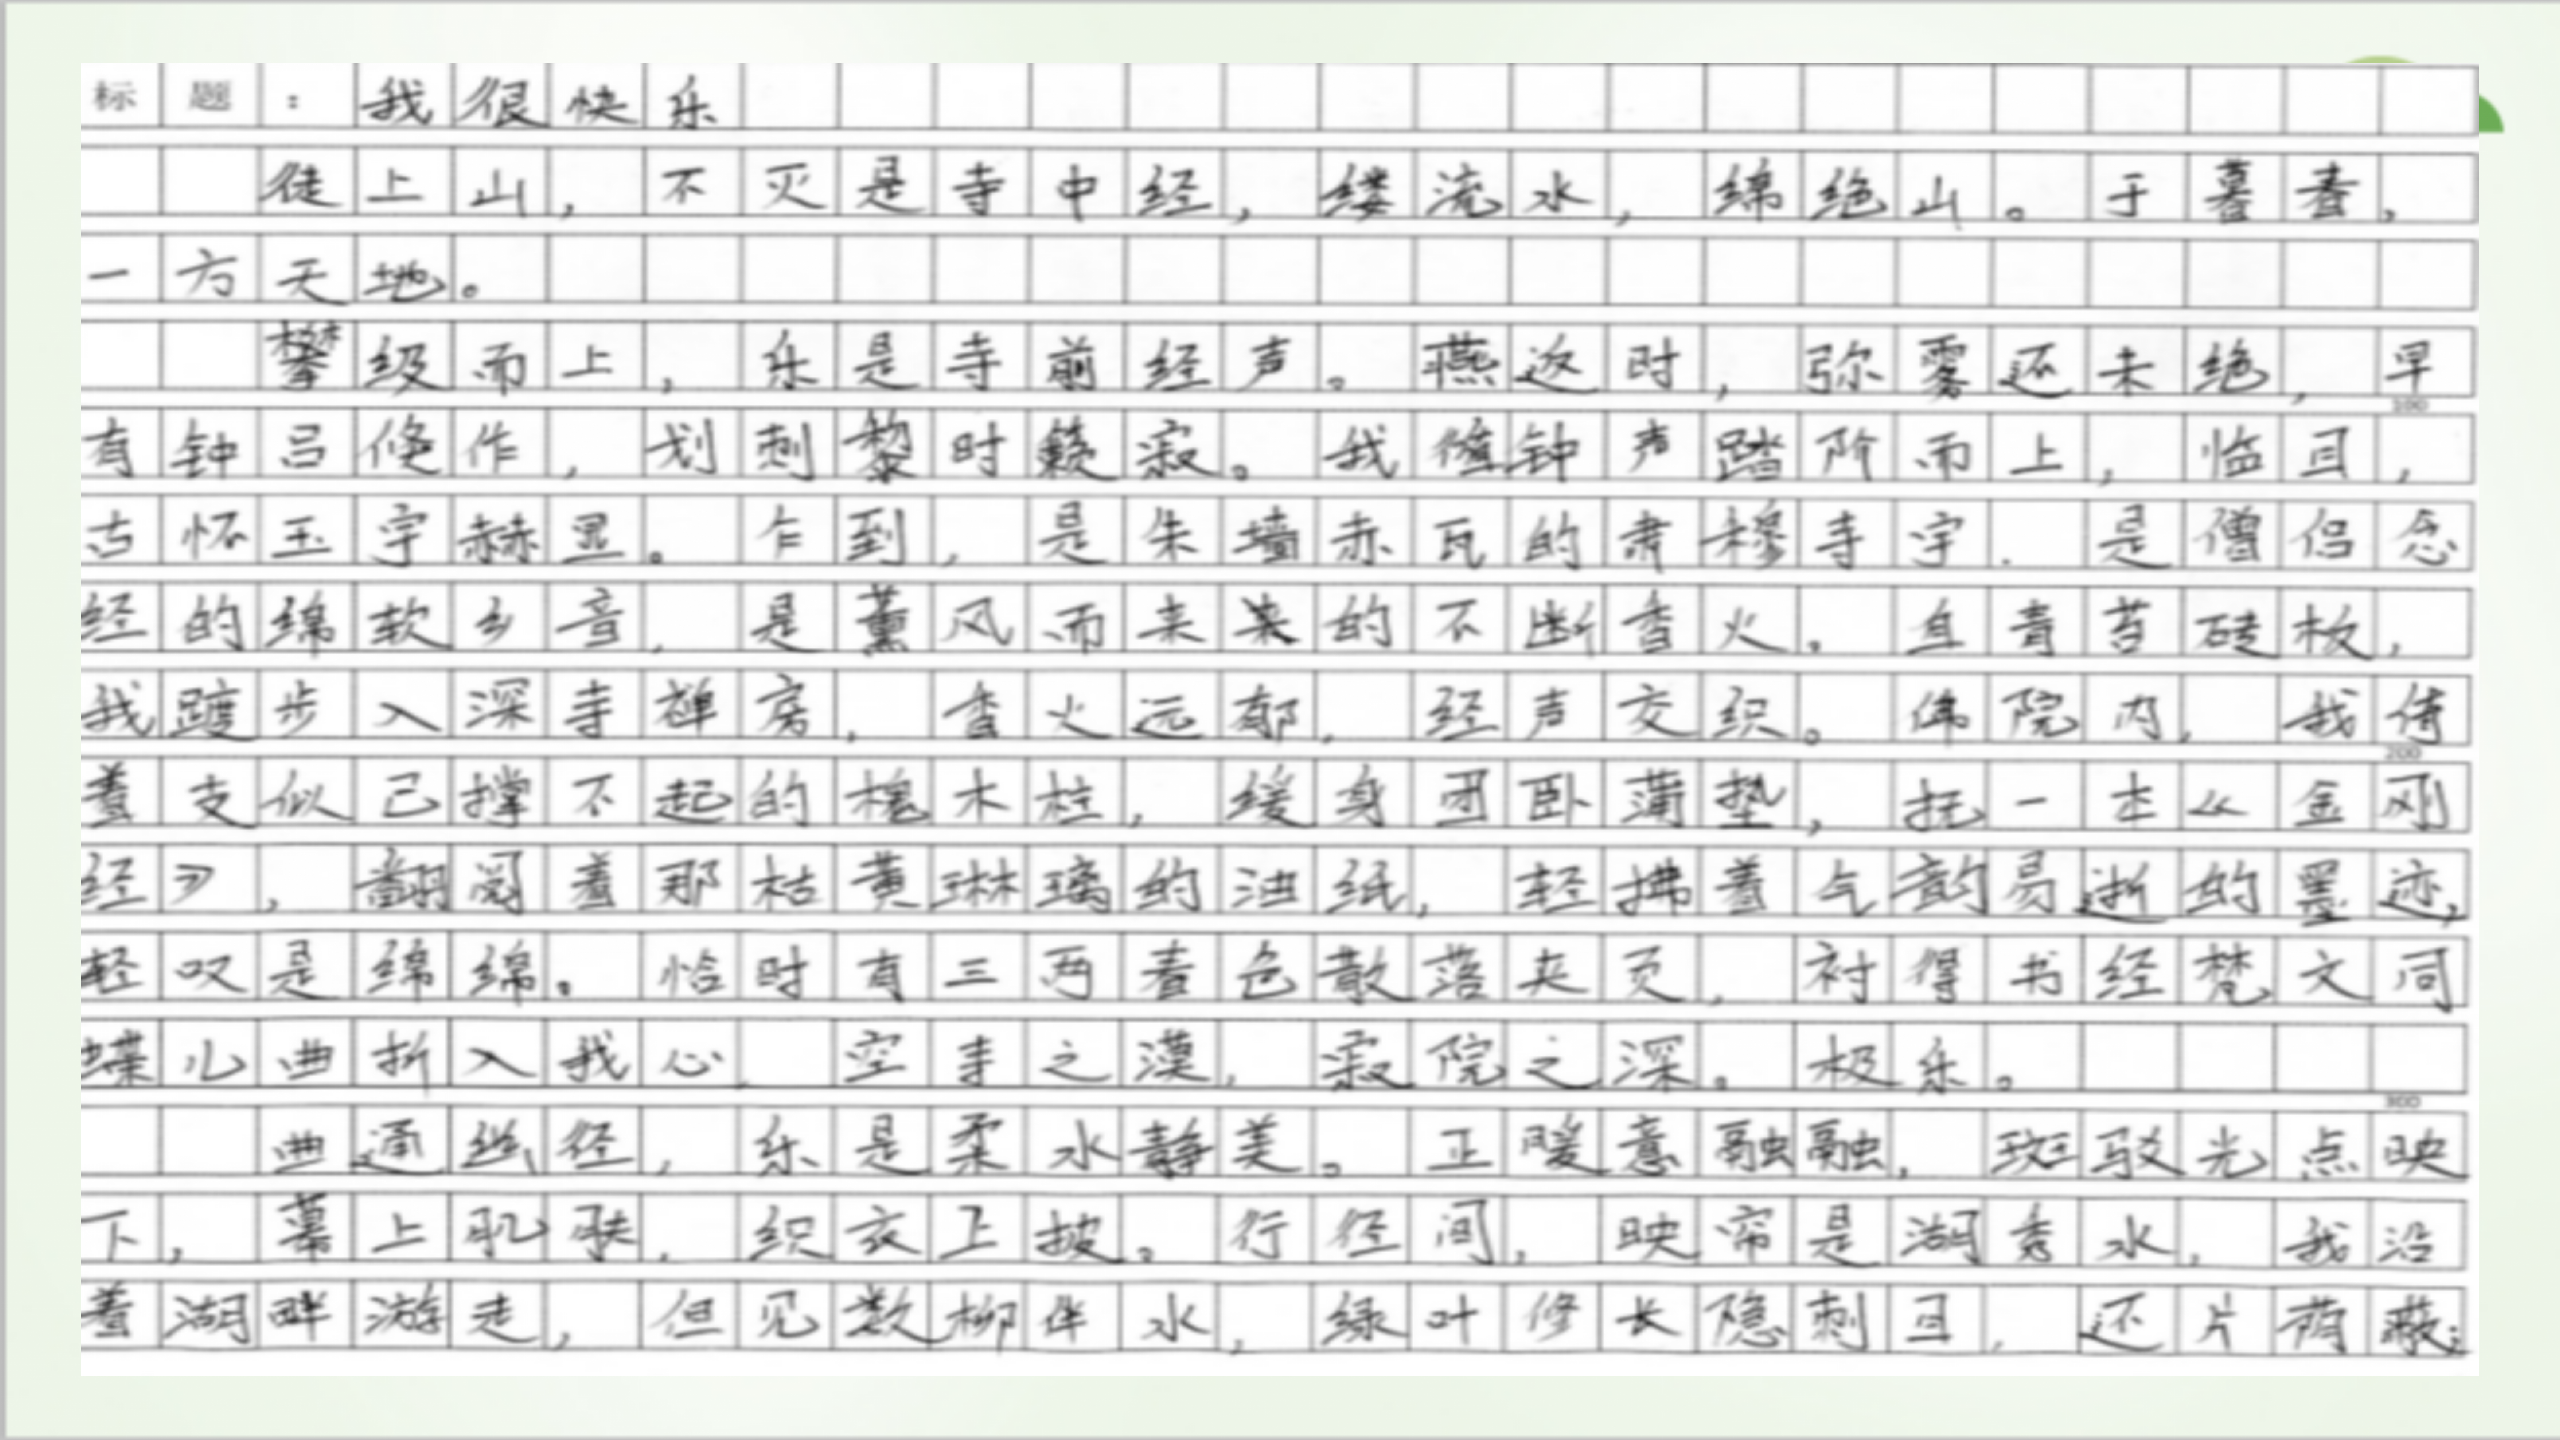 标题：我很快乐
徒上山，不灭是寺中经，缕流水，绵绝山。于暮春，
一方天地。
攀级而上，乐是寺前经声。燕返时，弥雾还未绝，早
有钟吕倏作，划刺黎时籁寂。我循钟声踏阶而上，临目，
古怀玉宇赫显。乍到，是朱墙赤瓦的肃穆寺宇，是僧侣念
经的绵软乡音，是薰风而来来的不断香火。自青苔砖板，
我踱步入深寺禅房，香火远郁，经声交织。佛院内，我倚
着支似已撑不起的槐木柱，缓身团卧蒲垫，抚一本《金刚
经》，翻阅着那枯黄琳璃的油纸，轻拂着气韵易逝的墨迹，
轻叹是绵绵。恰时有三两春色散落夹页，衬得书经梵文同
蝶儿曲折入我心，空寺之漠，寂院之深。极乐。
曲通丝径，乐是柔水静美。正暖意融融，斑驳光点映
下，幕上肌肤，织衣上披。行径间，映帘是湖秀水，我沿
着湖畔游走，但见数柳伴水，绿叶修长隐刺目，还片荫蔽；
100
200
300